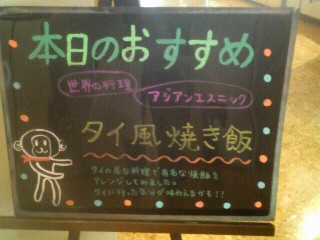 本日のおすすめ
世界の料理
アジアンエスニック
タイ風焼き飯
タイの屋台料理で有名な焼飯を
アレンジしてみました。
タイに行った気分が味わえるかも!?